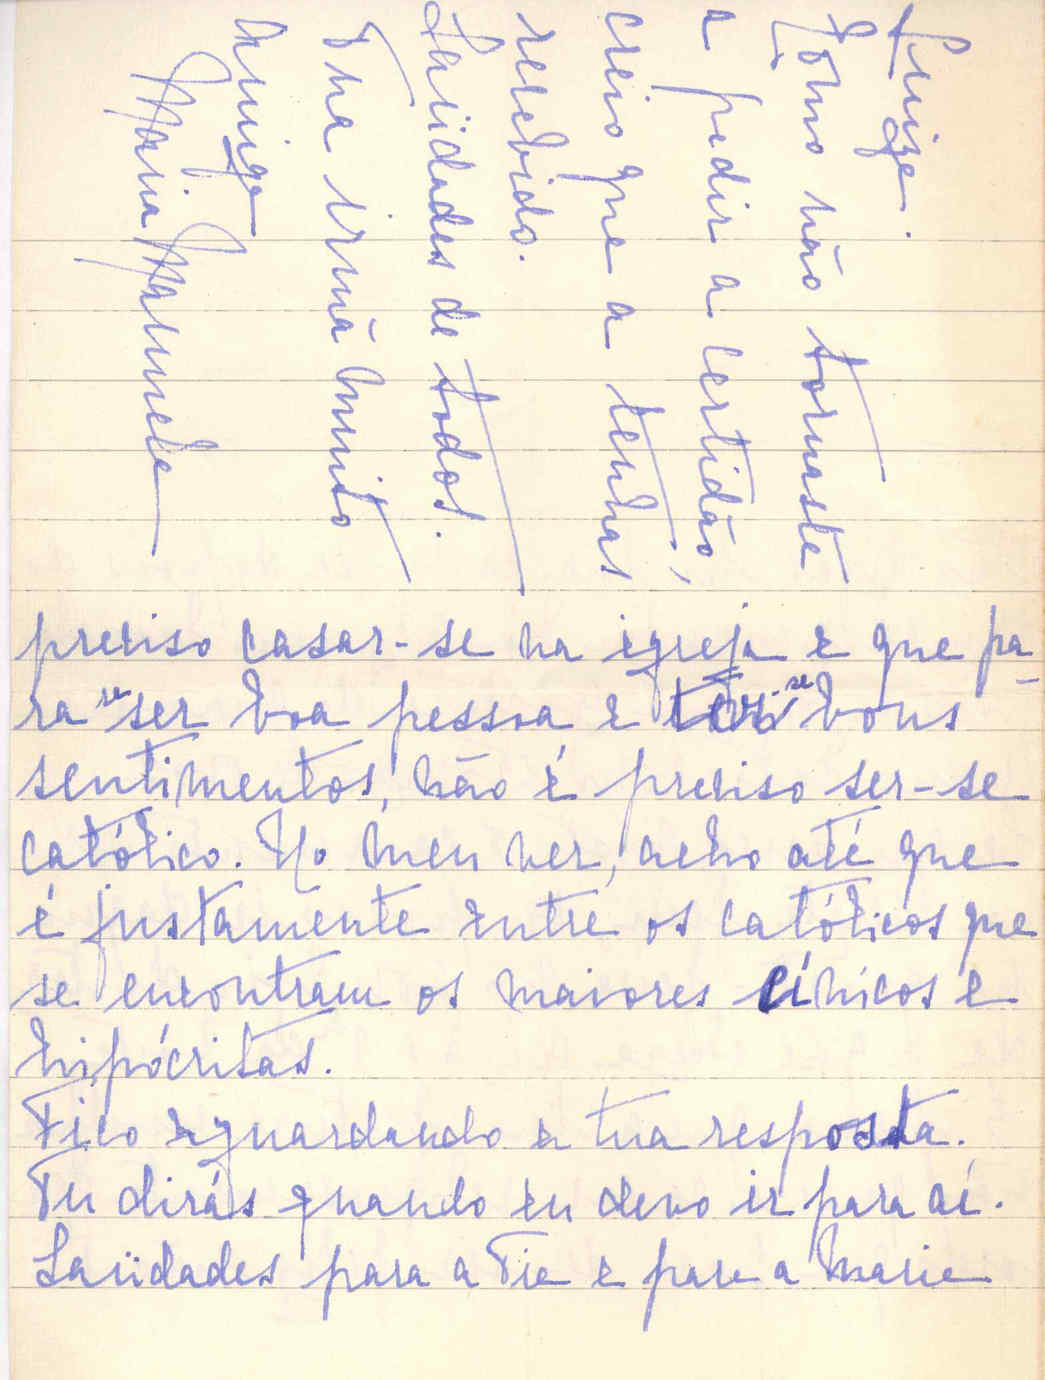 preciso casar-se na igreja e que pa-
ra se ser boa pessoa e ter-se bons
sentimentos, não é preciso ser-se
católico. No meu ver, acho até que
é justamente entre os católicos que
se encontram os maiores cínicos e
hipócritas.
Fico aguardando a tua resposta.
Tu dirás quando eu devo ir para aí.
Saüdades para a Tia e para a Maria
Luiza.
Como não tornaste
a pedir a certidão,
creio que a tenhas
recebido.
Saüdades de todos.
Tua irmã muito
Amiga
Maria Manuela